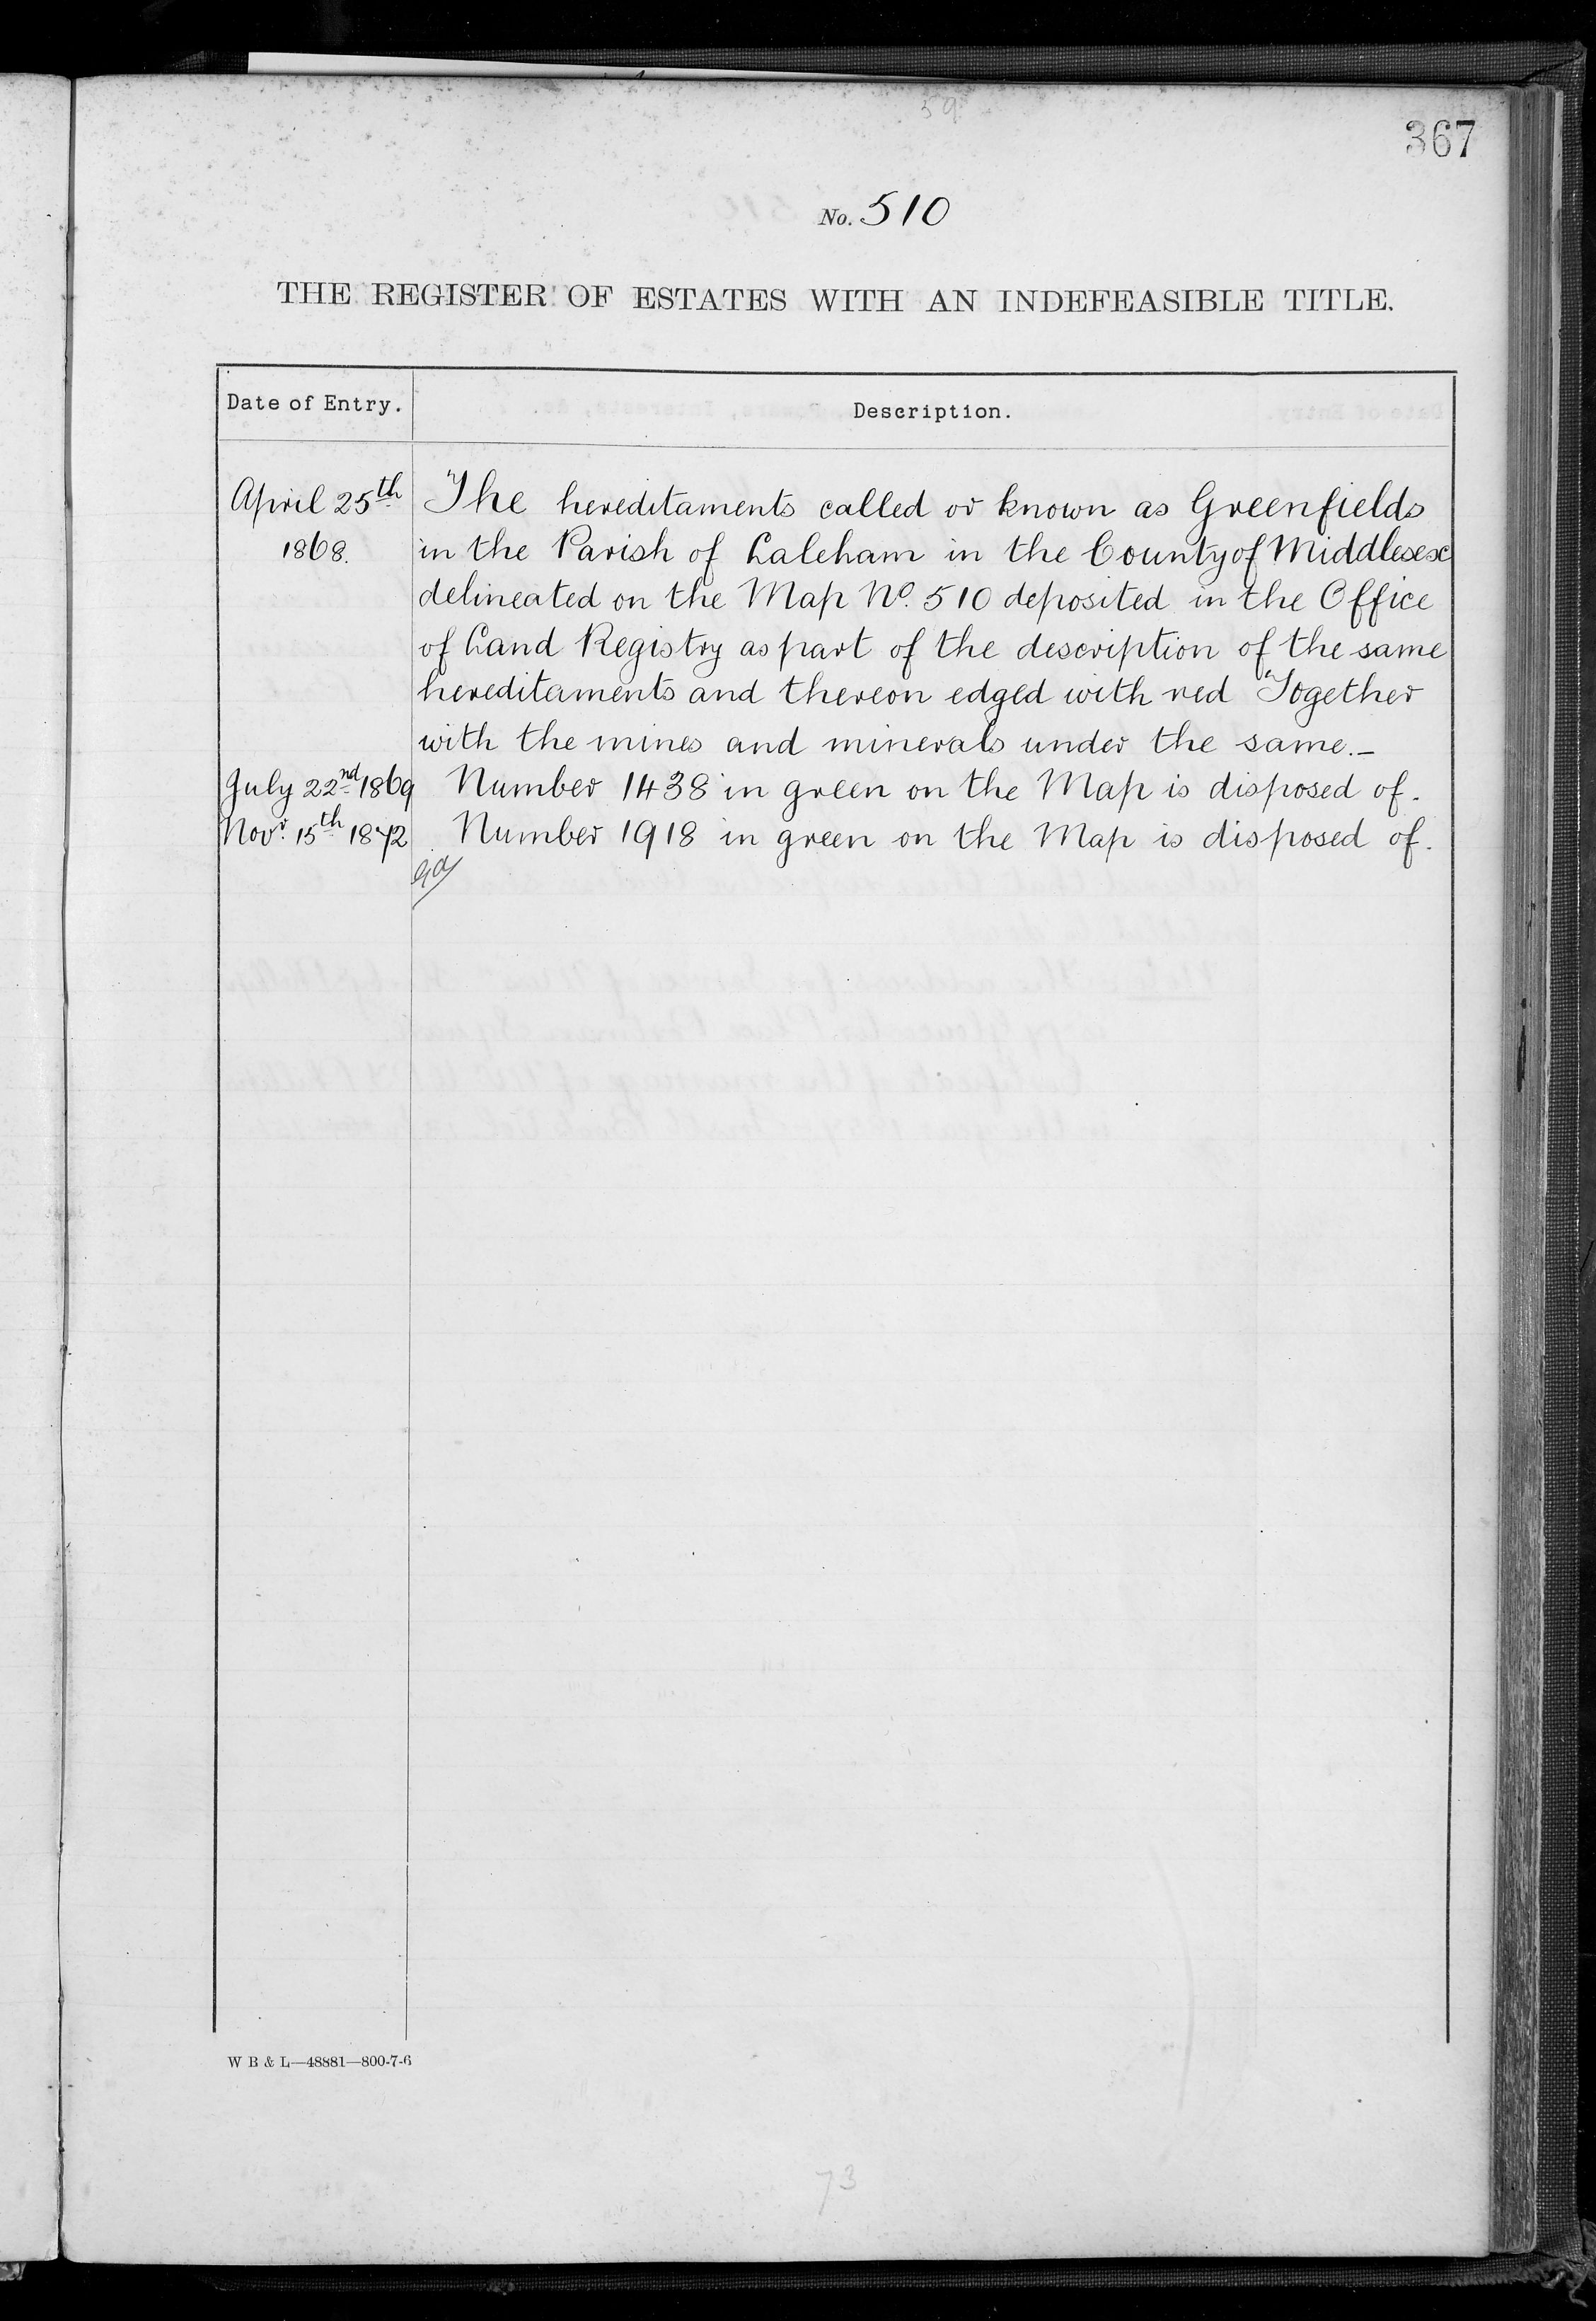 59
367
No. 510
THE REGISTER OF ESTATES WITH AN INDEFEASIBLE TITLE.
Date of Entry. Description.
April 25th The hereditaments called or known as Greenfields
1868. in the Parish of Laleham in the County of Middlesex
delineated on the Map No. 510 deposited in the Office
of Land Registry as part of the description of the same
hereditaments and thereon edged with red Together
with the mines and minerals under the same.—
July 22nd 1869 Number 1438 in green on the Map is disposed of.
Novr. 15th 1872 Number 1918 in green on the Map is disposed of.
W B & L—48881—800-7-6
73